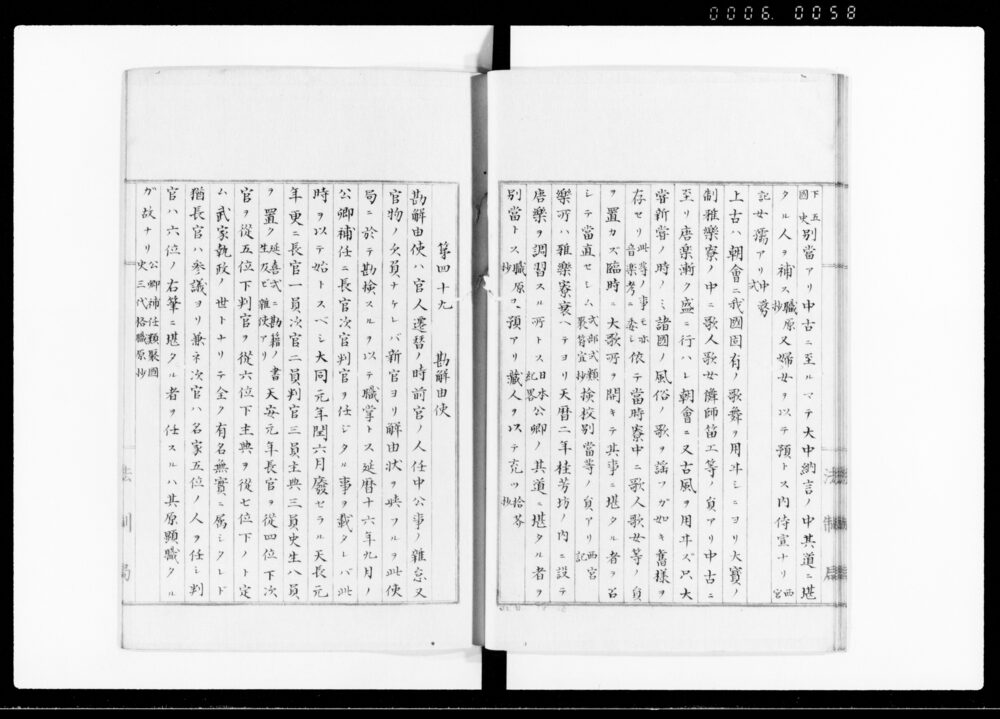 0006. 0058
下五國史別當アリ中古ニ至ルマテ大中納言ノ中其道ニ堪
タル人ヲ補ス職原抄又婦女ヲ以テ預トス内侍宣ナリ西宮
記女孺アリ中務式
上古ハ朝會ニ我國固有ノ歌舞ヲ用ヰシニヨリ大寶ノ
制雅樂寮ノ中ニ歌人歌女儛師笛工等ノ員アリ中古ニ
至リ唐樂漸ク盛ニ行ハレ朝會ニ又古風ヲ用ヰズ只大
嘗新嘗ノ時ノミ諸國ノ風俗ノ歌ヲ謡フガ如キ舊樣ヲ
存セリ此等ノ事モ亦音樂考ニ委シ依テ當時寮中ニ歌人歌女等ノ員
ヲ置カズ臨時ニ大歌所ヲ開キテ其事ニ堪タル者ヲ召
シテ當直セシム式部式類聚符宣抄検校別當等ノ員アリ西宮記
樂所ハ雅樂寮衰ヘテヨリ天暦二年桂芳坊ノ内ニ設テ
唐樂ヲ調習スル所トス日本紀畧公卿ノ其道ニ堪タル者ヲ
別當トス職原抄預アリ藏人ヲ以テ充ツ拾芥抄
法制局
第四十九 勘解由使
勘解由使ハ官人遷替ノ時前官ノ人任中公事ノ雜怠又
官物ノ欠負ナケレバ新官ヨリ解由状ヲ與フルヲ此使
局ニ於テ勘檢スルヲ以テ職掌トス延暦十六年九月ノ
公卿補任ニ長官次官判官ヲ任シタル事ヲ載タレバ此
時ヲ以テ始トスベシ大同元年閏六月廢セラル天長元
年更ニ長官一員次官二員判官三員主典三員史生八員
ヲ置ク延喜式ニ勘籍ノ書生及ビ雜使アリ天安元年長官ヲ從四位下次
官ヲ從五位下判官ヲ從六位下主典ヲ從七位下ノト定
ム武家執政ノ世トナリテ全ク有名無實ニ属シタレド
猶長官ハ参議ヨリ兼ネ次官ハ名家五位ノ人ヲ任シ判
官ハ六位ノ右筆ニ堪タル者ヲ任スルハ其原顯職タル
ガ故ナリ公卿補任類聚國史三代格職原抄
法制局